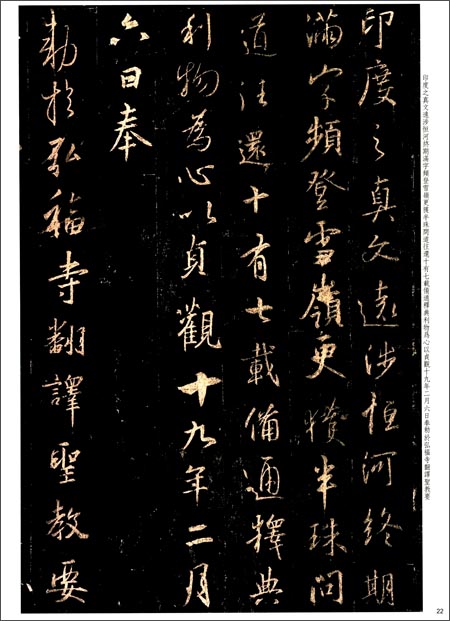 印度之真文遠涉恒河終期滿字頻登雪嶺更獲半珠問道往還十有七載備通釋典利物為心以貞觀十九年二月六日奉勅於弘福寺翻譯聖教要
印度之真文遠涉恒河終期
滿字頻登雪嶺更獲半珠問
道往還十有七載備通釋典
利物為心以貞觀十九年二月
六日奉
勅於弘福寺翻譯聖教要
22